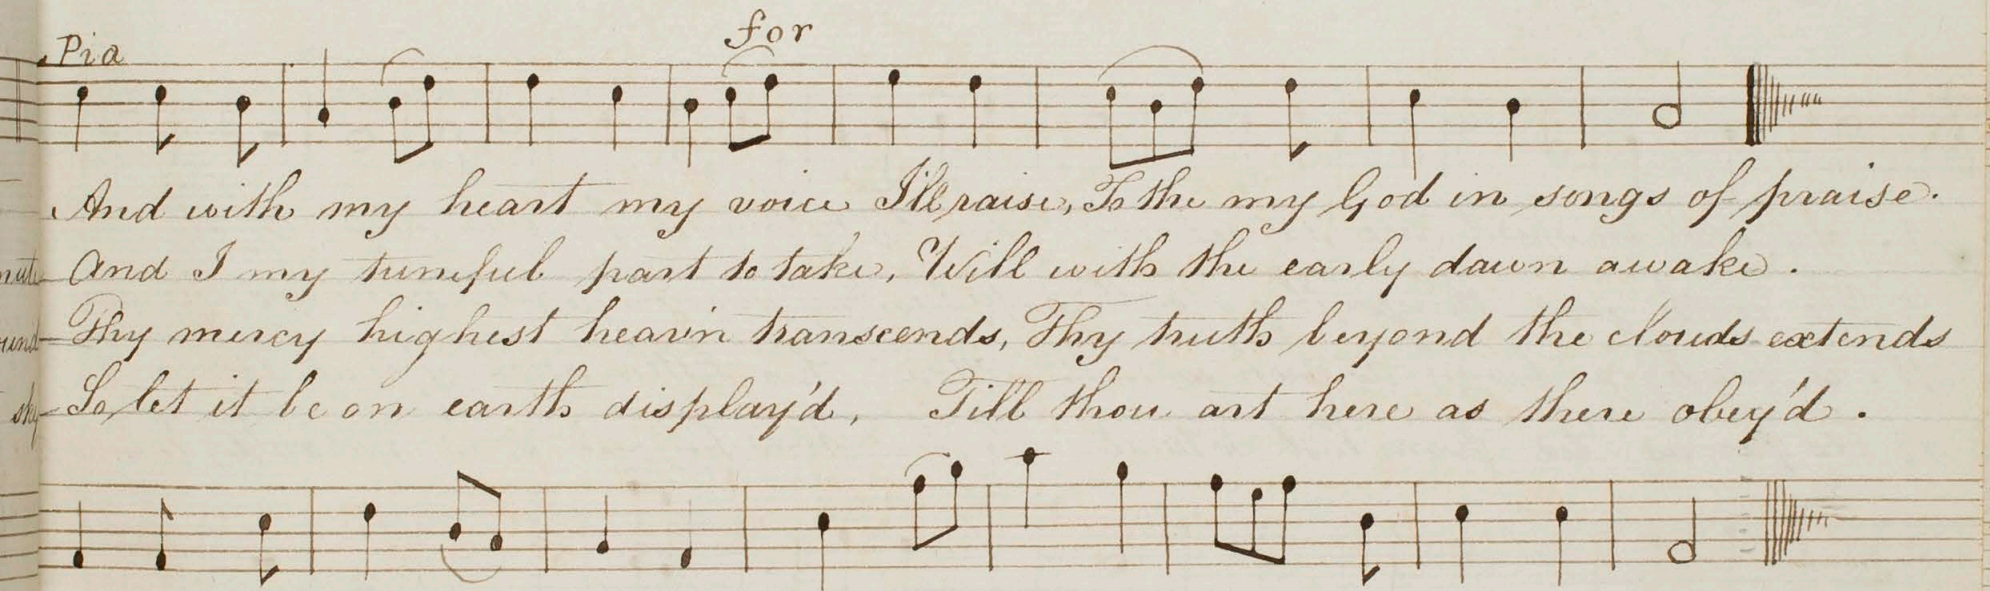 Pia
for
And with my heart my voice I'll raise, To the my God in songs of praise.
And I my tuneful part to take, Will with the early dawn awake.
Thy mercy highest heav'n transcends, Thy truth beyond the clouds extends
So let it be on earth display'd, Till thou art here as there obey'd.
sky